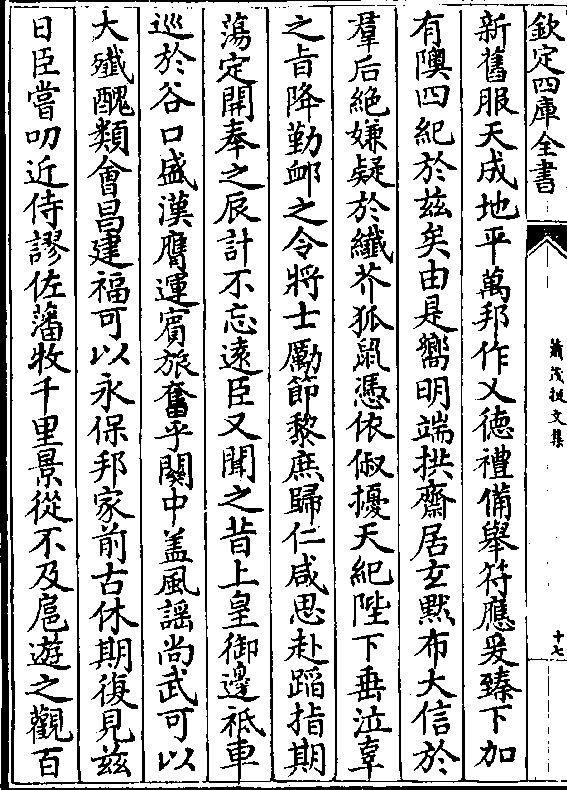 欽定四庫全書
蕭茂挺文集
十七
新舊服天成地平萬邦作乂德禮備舉符應爰臻下加
有隩四紀於兹矣由是嚮明端拱齋居玄默布大信於
羣后絶嫌疑於纖芥狐䑕憑依俶擾天紀陛下垂泣辜
之㫖降勤䘏之令將士勵節黎庶歸仁咸思赴蹈指期
蕩定開奉之辰計不忘逺臣又聞之昔上皇御邊祗車
巡於谷口盛漢膺運賓旅奮乎闗中葢風謡尚武可以
大殱醜類會昌建福可以永保邦家前古休期復見兹
日臣嘗叨近侍謬佐藩牧千里景從不及扈遊之觀百